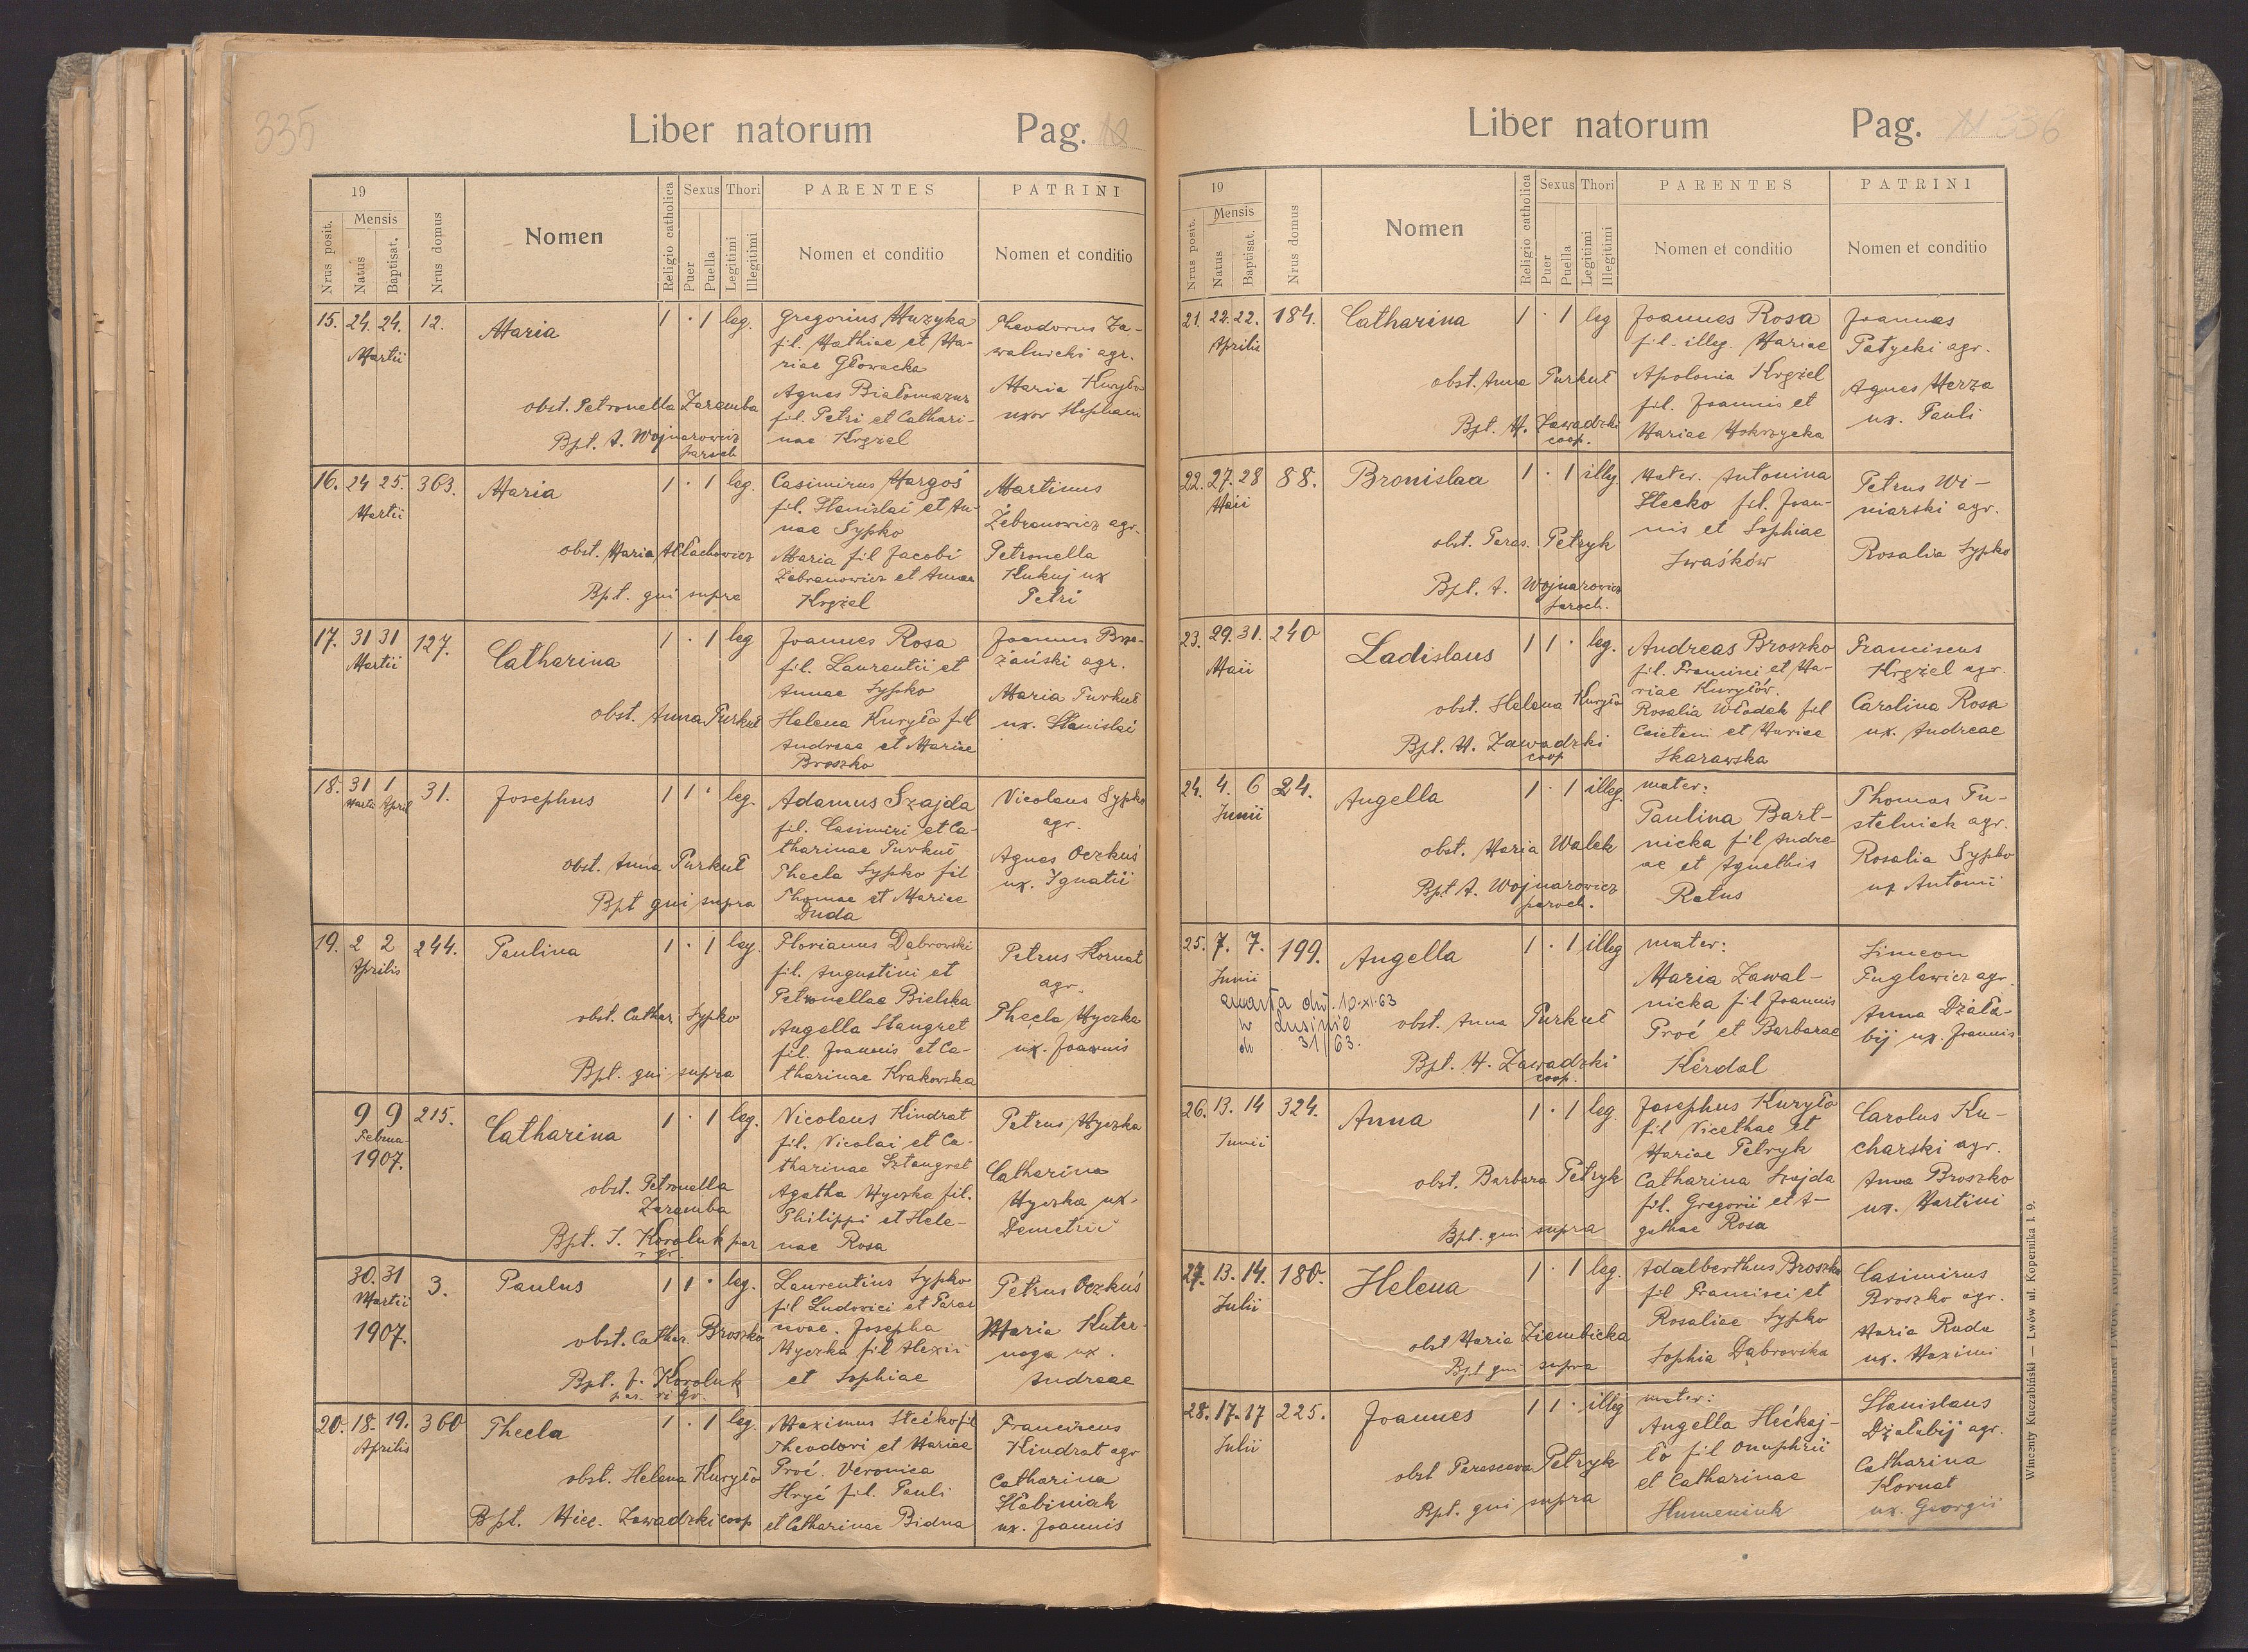 335
Liber natorum Pag. 18
19
Mensis
Nrus posit.
Natus
Baptisat.
Nrus domus
Nomen
Religio catholica
Sexus
Puer
Puella
Thori
Legitimi
Illegitimi
PARENTES
Nomen et conditio
PATRINI
Nomen et conditio
15. 24. 24. 12.
Martii
Maria
1 · 1 leg.
obst. Petronella Zaremba
Bpt. A. Wojnarowicz
paroch
Gregorius Muzyka
fil. Mathiae et Ma-
riae Głowacka
Agnes Białomazur
fil. Petri et Cathari-
nae Krężel
Theodorus Za-
walnicki agr.
Maria Kuryło
uxor Stephani
16. 24 25. 363.
Martii
Maria
1 · 1 leg.
obst. Maria
Bpt. qui supra
Casimirus Margoś
fil. Stanislai et An-
nae Sypko
Maria fil Jacobi
Żebranowicz et Annae
Krężel
Martinus
Żebranowicz agr.
Petronella
Kukuj ux
Petri
17. 31 31 127.
Martii
Catharina
1 · 1 leg
obst. Anna Purkuł
Joannes Rosa
fil. Laurentii et
Annae Sypko
Helena Kuryło fil
Andreae et Mariae
Broszko
Joannes Brze-
żański agr.
Maria Purkuł
ux. Stanislai
18. 31 1 31.
Martii April
Josephus
1 1 · leg.
obst. Anna Purkuł
Bpt qui supra
Adamus Szajda
fil. Casimiri et Ca-
tharinae Purkuł
Thecla Sypko fil
Thomae et Mariae
Duda
Nicolaus Sypko
agr.
Agnes Oczkuś
ux. Ignatii
19. 2 2 244.
Aprilis
Paulina
1 · 1 leg.
obst. Cathar. Sypko
Bpt. qui supra
Florianus Dąbrowski
fil. Augustini et
Petronellae Bielska
Angella Stangret
fil. Joannis et Ca-
tharinae Krakowska
Petrus Kornat
agr.
Thecla Hyczka
ux. Joannis
9 9 215.
Februa-
1907.
Catharina
1 · 1 leg.
obst. Petronella
Zaremba
Bpt. J. Koroluk par
r gr.
Nicolaus Kindrat
fil. Nicolai et Ca-
tharinae Sztangret
Agatha Hyczka fil.
Philippi et Hele-
nae Rosa
Petrus Hyczka
Catharina
Hyczka ux.
Demetrii
30. 31 3.
Martii
1907.
Paulus
1 1 · leg.
obst. Cathar. Broszko
Bpt. J. Koroluk
par. ri gr.
Laurentius Sypko
fil Ludovici et Paras
cevae. Josepha
Hyczka fil Alexii
et Sophiae
Petrus Oczkuś
Maria Kuter-
noga ux.
Andreae
20. 18. 19. 360
Aprilis
Thecla
1 · 1 leg.
obst. Helena Kuryło
Bpt. Mich. Zawadzki coop
Maximus Stećko fil
Theodori et Mariae
Proć. Veronica
Hryć fil. Pauli
et Catharinae Bidna
Franciscus
Kindrat agr
Catharina
Słabiniak
ux. Joannis
Liber natorum Pag. 336
19
Mensis
Nrus posit.
Natus
Baptisat.
Nrus domus
Nomen
Religio catholica
Sexus
Puer
Puella
Thori
Legitimi
Illegitimi
PARENTES
Nomen et conditio
PATRINI
Nomen et conditio
21. 22. 22. 184.
Aprilis
Catharina
1 · 1 leg
obst. Anna Purkuł
Bpt. M. Zawadzki
coop.
Joannes Rosa
fil. illeg. Mariae
Apolonia Krężel
fil. Joannis et
Mariae Mokrzycka
Joannes
Patycki agr.
Agnes Merza
ux. Pauli
22. 27. 28 88.
Maii
Bronislaa
1 · 1 illeg.
obst. Paras. Petryk
Bpt. A. Wojnarowicz
paroch.
Mater. Antonina
Stecko fil. Joan-
nis et Sophiae
Iwaśków
Petrus Wi-
niarski agr.
Rosalia Sypko
23. 29. 31. 240
Maii
Ladislaus
1 1 · leg.
obst. Helena Kuryło
Bpt. M. Zawadzki
coop
Andreas Broszko
fil. Francisci et Ma-
riae Kuryłów.
Rosalia Włodek fil
Caietani et Mariae
Skarawska
Franciscus
Krężel agr.
Carolina Rosa
ux. Andreae
24. 4. 6 24.
Junii
Angella
1 · 1 illeg.
obst. Maria Walek
Bpt. A. Wojnarowicz
paroch.
mater:
Paulina Bart-
nicka fil Andre-
ae et Agnethis
Ratus
Thomas Pu-
stelniak agr.
Rosalia Sypko
ux Antonii
25. 7. 7. 199.
Junii
Angella
1 · 1 illeg
zmarła dn. 10.XI.63
w Lusinie
31/63.
obst. Anna Purkuł
Bpt. M. Zawadzki
coop.
mater:
Maria Zawal-
nicka fil Joannis
Proć et Barbarae
Kerdal
Simeon
Puglewicz agr.
Anna Działa-
bij ux. Joannis
26. 13. 14 324.
Junii
Anna
1 · 1 leg.
obst. Barbara Petryk
Bpt. qui supra
Josephus Kuryło
fil Nicethae et
Mariae Petryk
Catharina Szajda
fil. Gregorii et A-
gathae Rosa
Carolus Ku-
charski agr.
Anna Broszko
ux. Martini
27. 13. 14. 180.
Julii
Helena
1 · 1 leg.
obst Maria Ziembicka
Bpt qui supra
Adalberthus Broszko
fil Francisci et
Rosaliae Sypko
Sophia Dąbrowska
Casimirus
Broszko agr.
Maria Ruda
ux. Maximi
28. 17. 17 225.
Julii
Joannes
1 1 · illeg
obst Parasceva Petryk
Bpt. qui supra
mater:
Angella
ło fil Onuphrii
et Catharinae
Humeniuk
Stanislaus
Działabij agr.
Catharina
Kornat
ux. Georgii
Wincenty Kuczabiński — Lwów ul. Kopernika l. 9.